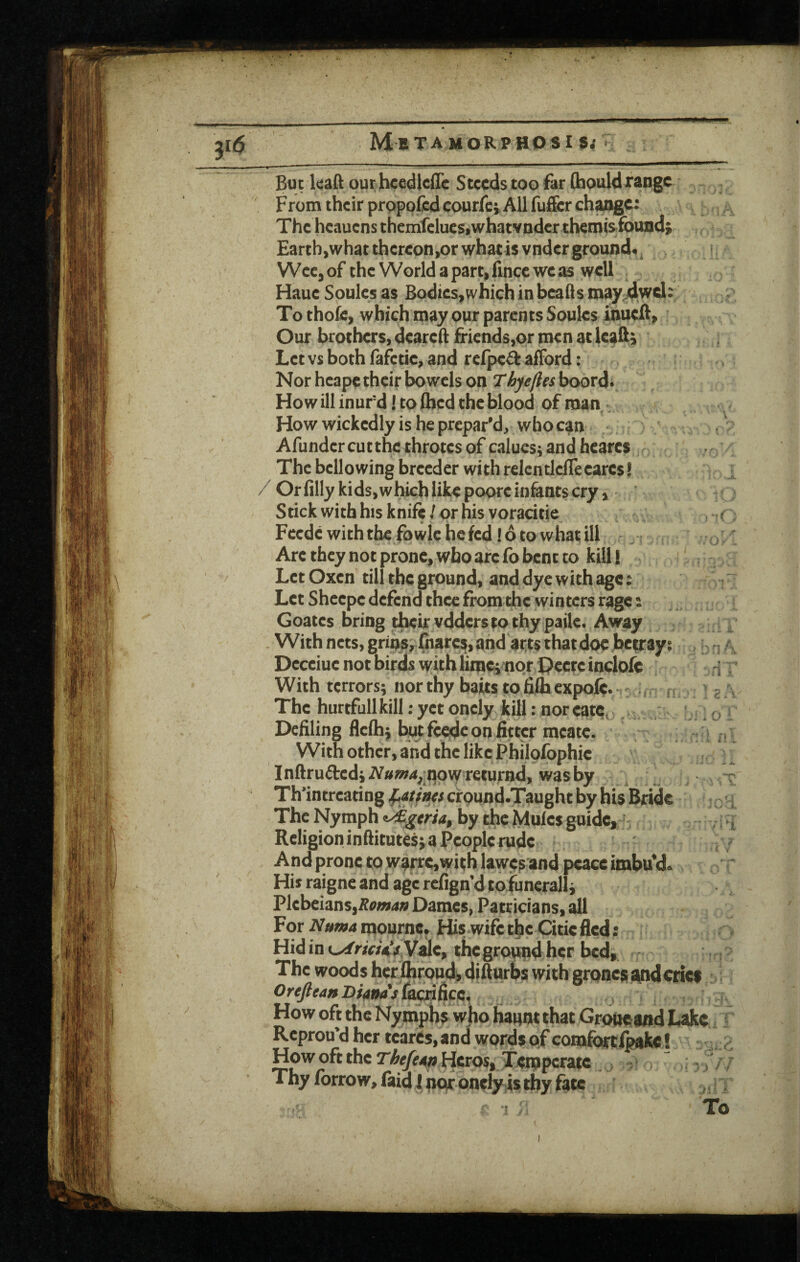 316 METAMORPHOSIS.
But leaſt our heedleſſe Steeds too far ſhould range
From their propoſed courſe; All ſuffer change:
The heauens themſelues, what vnder them is found;
Earth, what thereon, or what is vnder ground.
Wee, of the World a part, ſince we as well
Haue Soules as Bodies, which in beaſts may dwel:
To thoſe, which may our parents Soules inueſt,
Our brothers, deareſt friends, or men at leaſt;
Let vs both ſafetie, and reſpect afford:
Nor heape their bowels on Thyeſtes boord.
How ill inur'd! to ſhed the blood of man
How wickedly is he prepar'd, who can
Aſunder cut the throtes of calues; and heares
The bellowing breeder with relentleſſe eares!
Or ſilly kids, which like poore infants cry,
Stick with his knife! or his voracitie
Feede with the fowle he fed! ô to what ill
Are they not prone, who are ſo bent to kill!
Let Oxen till the ground, and dye with age:
Let Sheepe defend thee from the winters rage:
Goates bring their vdders to thy paile. Away
With nets, grins, ſnares, and arts that doe betray;
Deceiue not birds with lime; nor Deere incloſe
With terrors; nor thy baits to fiſh expoſe.
The hurtfull kill: yet onely kill: nor eate
Defiling fleſh; but feede on fitter meate.
With other, and the like Philoſophie
Inſtructed; Numa, now returnd, was by
Th'intreating Latines cround. Taught by his Bride
The Nymph Ægeria, by the Muſes guide,
Religion inſtitutes; a People rude
And prone to warre, with lawes and peace imbu'd.
His raigne and age reſign'd to funerall;
Plebeians, Roman Dames, Patricians, all
For Numa mourne. His wife the Citie fled:
Hid in Aricia's Vale, the ground her bed,
The woods her ſhroud, diſturbs with grones and cries
Oreſtean Diana's ſacrifice.
How oft the Nymphs who haunt that Groue and Lake
Reprou'd her teares, and words of comfort ſpake!
How oft the Theſean Heros, Temperate
Thy ſorrow, ſaid! nor onely is thy fate
To